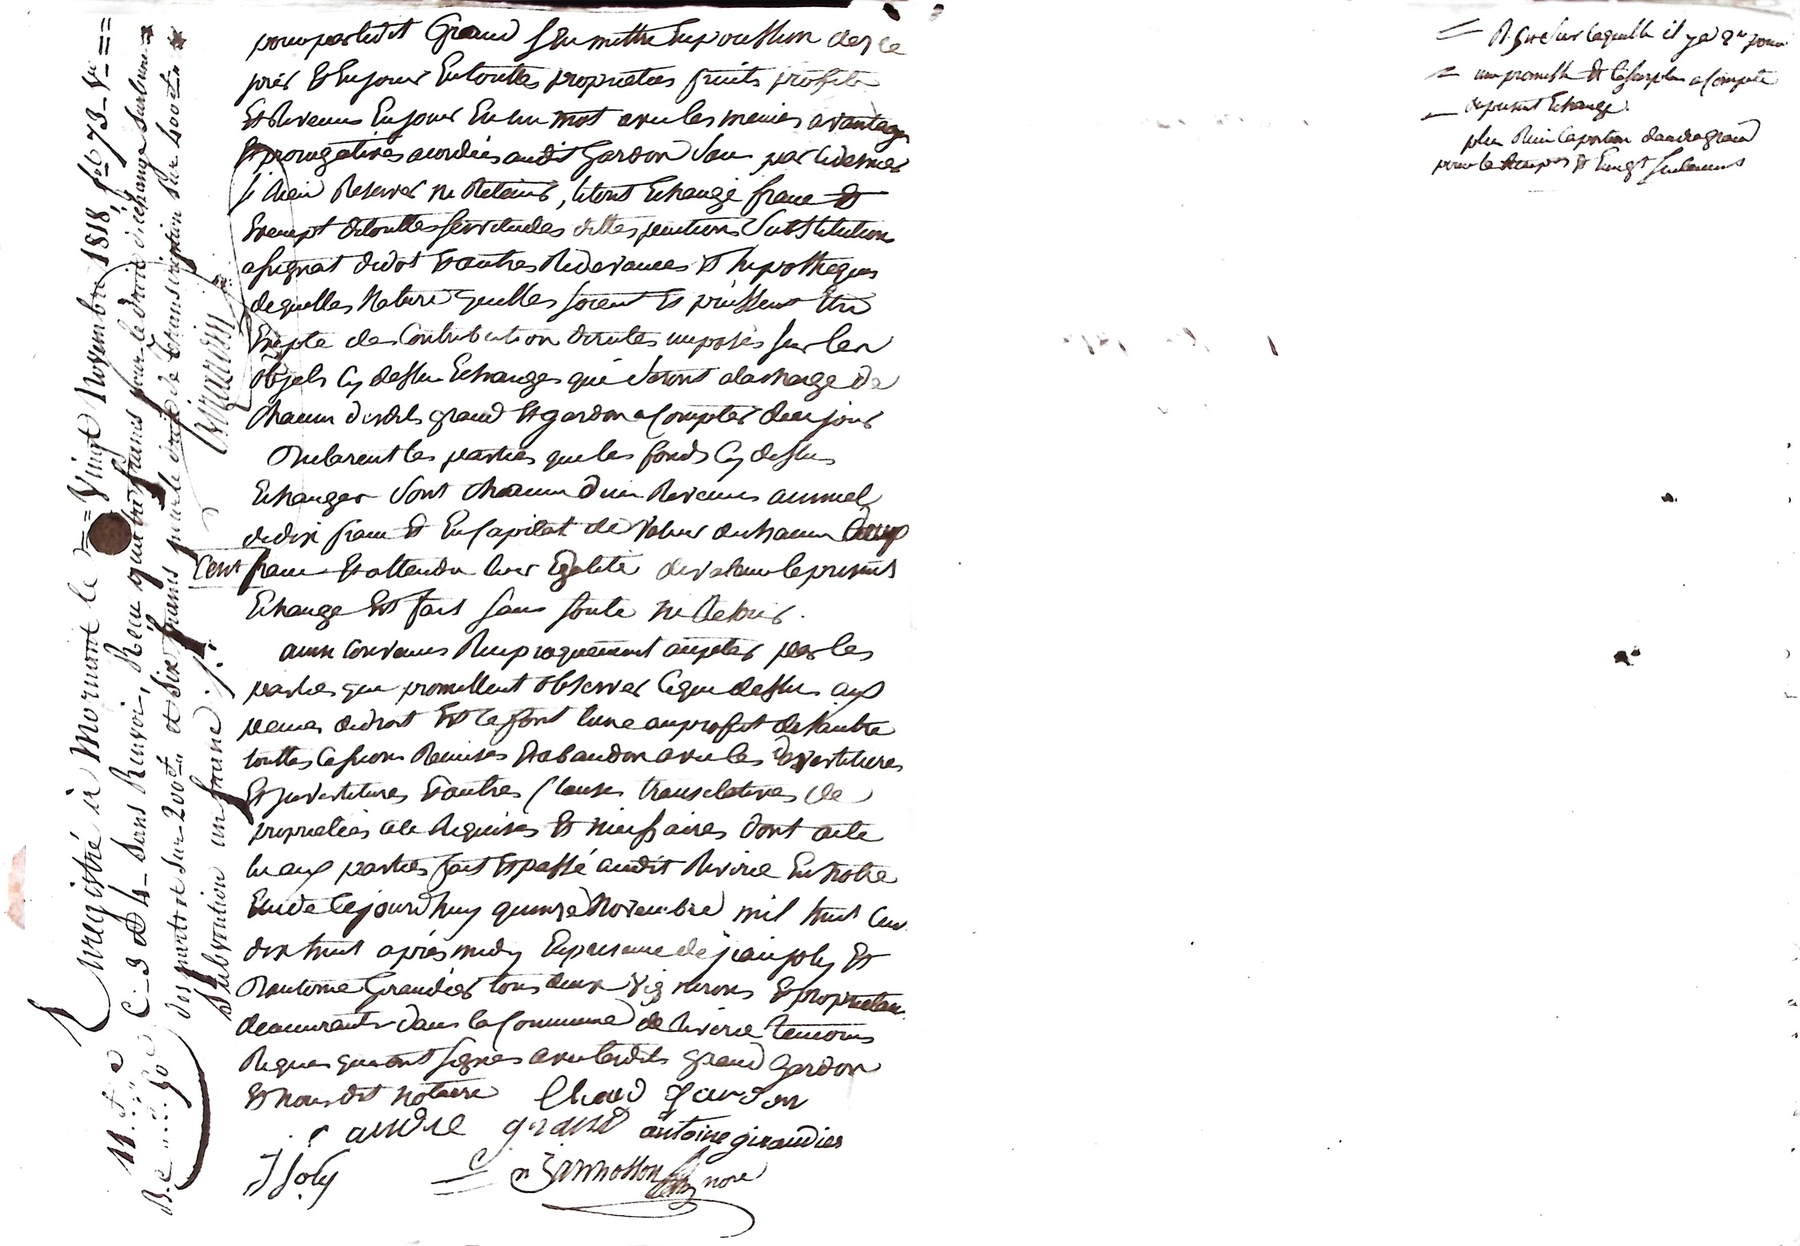 pour par ledit Grand s'en mettre en possession dez ce
jour et en jouir en toutes proprietes fruits profits
et revenus en jouir en un mot avec les memes avantages
et prerogatives acordées audit Gardon sans par ce dernier
s'i rien reserver ni retenir, le tout echangé franc et
exempt de touttes servitudes dettes pentions substitutions
assignat de dot et autres redevances et hypotheques
de quelles nature quelles soient et puissent être
excepté des contributions directes imposés sur les
objets cy dessus echangés qui seront a la charge de
chacun desdits grand et gardon a compter de ce jour
Declarent les parties que les fonds cy dessus
echanger sont chacun d'un revenu annuel
de dix franc et en capital de valeur de chacun
Cent franc et attendu leur egalité de valeur le present
Echange est fait sans soute ni retour.
ainsi convenus reciproquement acepter par les
parties que promettent observer ce que dessus aux
peines de droit et ce font l'une au profit de l'autre
touttes cessions remises et abandon avec les devestitures
et investitures et autres clauses translatives de
proprietés a ce requises et necessaires dont acte
lu aux parties fait et passé audit Riverie en notre
Etude ce jourd'huy quinze Novembre mil huit cent
dix huit après midy en presence de jean joly et
d'antoine Giraudier tous deux vignerons et proprietaires
demeurants dans la commune de Riverie temoins
requis qui ont signés avec lesdits grand Gardon
et nous dit notaire Claude Gardon
andré grand antoine giraudier
J Joly nore
Enregistré à Mornant le == Vingt Novembre 1818, fo 673
C. 3 et 4 sans Renvoi, Reçu quatre francs pour le droit d'échange sur une
des parts et sur 200 f et six francs pour le droit de transcription sur 400 f
Subvention un franc
11. f
= un promesse et le surplus a compter
du present Echange.